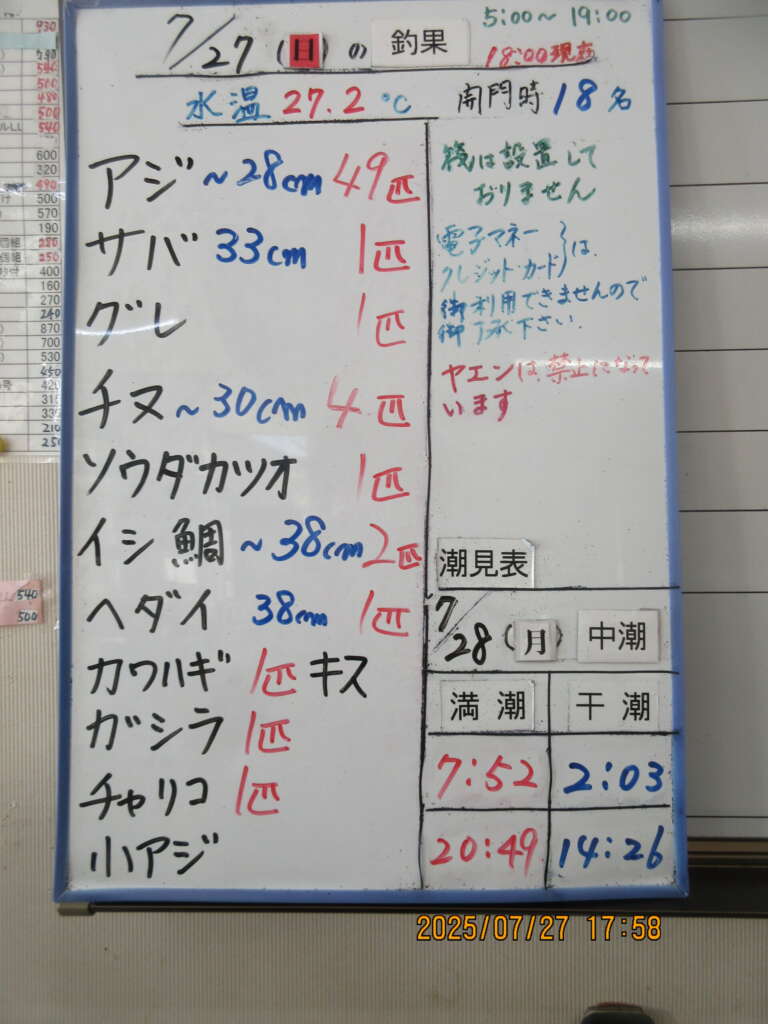 7/27(日)の 釣果
5:00～19:00
18:00現在
水温 27.2℃ 開門時 18名
アジ ～28cm 49匹
サバ 33cm 1匹
グレ 1匹
チヌ ～30cm 4匹
ソウダカツオ 1匹
イシ鯛 ～38cm 2匹
ヘダイ 38cm 1匹
カワハギ 1匹 キス
ガシラ 1匹
チャリコ 1匹
小アジ
桟は設置して
おりません
電子マネー
クレジットカード}は
御利用できませんので
御了承下さい.
ヤエンは禁止になって
います
潮見表
7/28(月) 中潮
満潮 干潮
7:52 2:03
20:49 14:26
540
500
2025/07/27 17:58